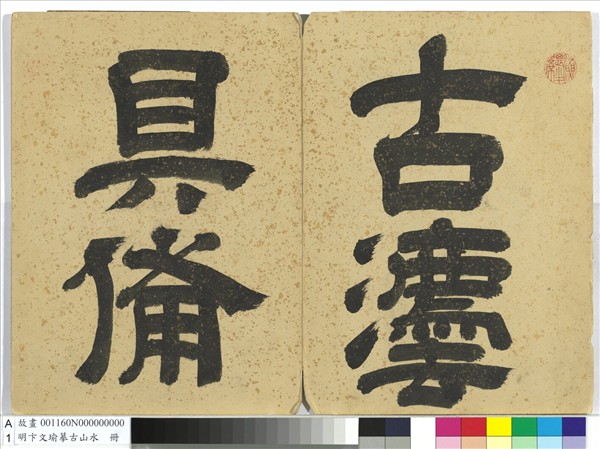 古灋
具備
A
1
故畫 001160N000000000
明卞文瑜摹古山水 冊